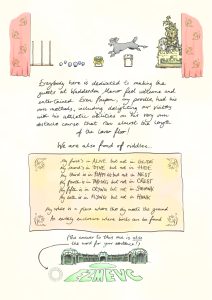 Everybody here is dedicated to making the
guests at Waddesdon Manor feel welcome and
entertained. Even Poupon, my poodle had his
own methods, including delighting our visitors
with his athletic abilities on his very own
obstacle course that ran almost the length
of the lower floor!
We are also fond of riddles...
My first's in ALIVE but not in
My second's in DIVE but not in HIDE
My third is in but not in NEST
My fourth is in but not in CREST
My fifth is in CROWN but not in
My sixth is in but not in
My whole is a place where sky meets the ground
An enclosure where birds can be found
(The answer to this one is also
the word for your sentence!)